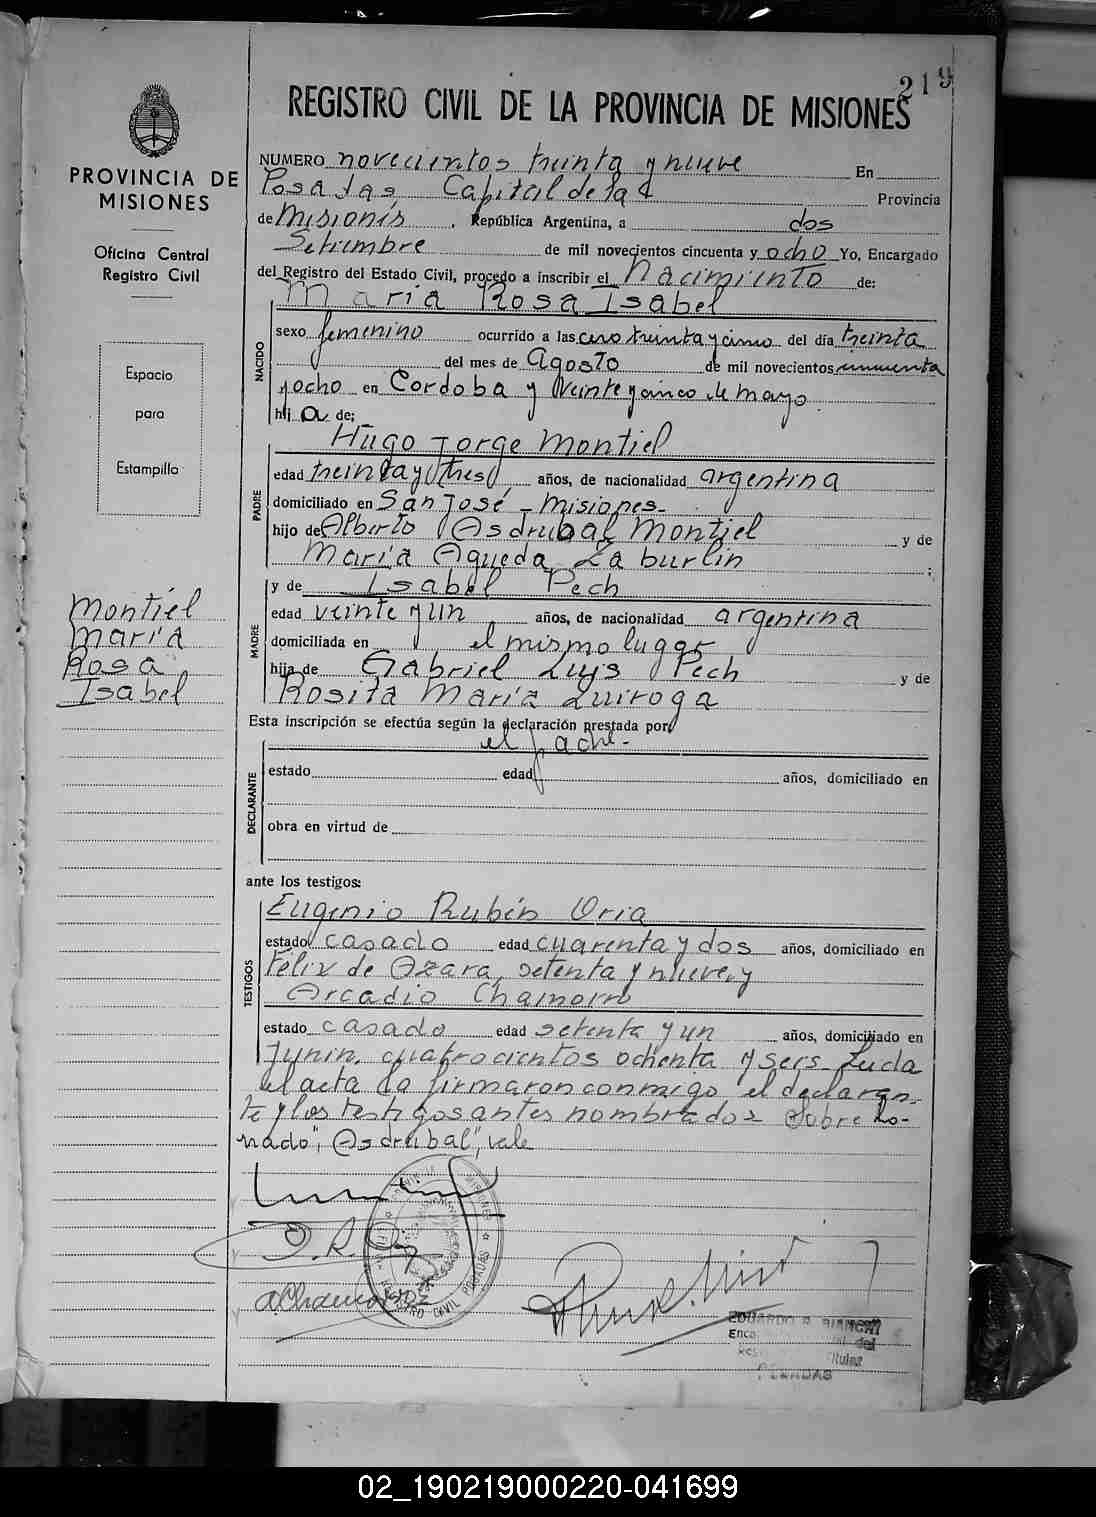 219
REGISTRO CIVIL DE LA PROVINCIA DE MISIONES
PROVINCIA DE
MISIONES
Oficina Central
Registro Civil
Espacio
para
Estampilla
Montiel
María
Rosa
Isabel
NUMERO novecientos treinta y nueve En
Posadas Capital de la Provincia
de Misiones, República Argentina, a dos
Setiembre de mil novecientos cincuenta y ocho Yo, Encargado
del Registro del Estado Civil, procedo a inscribir el Nacimiento de:
NACIDO
María Rosa Isabel
sexo femenino ocurrido a las cero treinta y cinco del día treinta
del mes de Agosto de mil novecientos cincuenta
y ocho en Cordoba y Veinte y cinco de mayo
hija de;
PADRE
Hugo Jorge Montiel
edad treinta y tres años, de nacionalidad argentina
domiciliado en San José - Misiones-
hijo de Alberto Asdrubal Montiel y de
María Agueda Laburlin ;
MADRE
y de Isabel Pech
edad veinte y un años, de nacionalidad argentina
domiciliada en el mismo lugar
hija de Gabriel Luis Pech y de
Rosita María Quiroga
Esta inscripción se efectúa según la declaración prestada por
el padre-
DECLARANTE
estado edad años, domiciliado en
obra en virtud de
ante los testigos:
TESTIGOS
Eugenio Rubén Oria
estado casado edad cuarenta y dos años, domiciliado en
Félix de Azara, setenta y nueve, y
Arcadio Chamorro
estado casado edad setenta y un años, domiciliado en
Junin, cuatrocientos ochenta y seis. Leida
el acta la firmaron conmigo, el declaran-
te y los testigos antes nombrados Sobre bo-
rrado", Asdrubal", vale
REGISTRO CIVIL POSADAS
MISIONES
A Chamorro
EDUARDO R. BIANCHI
del
Titulos
POSADAS
02_190219000220-041699